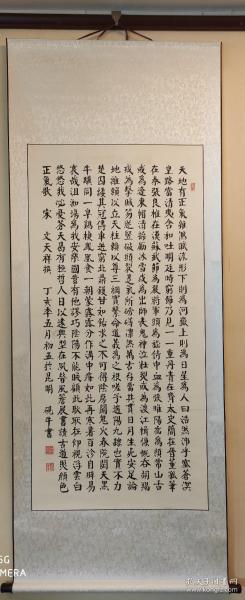 天地有正氣雜然賦流形下則為河嶽上則為日星於人曰浩然沛乎塞蒼冥
皇路當清夷含和吐明庭時窮節乃見一一垂丹青在齊太史簡在晉董狐筆
在秦張良椎在漢蘇武節為嚴將軍頭為嵇侍中血為張睢陽齒為顏常山舌
或為遼東帽清操厲冰雪或為出師表鬼神泣壯烈或為渡江楫慷慨吞胡羯
或為擊賊笏逆豎頭破裂是氣所磅礴凜烈萬古存當其貫日月生死安足論
地維賴以立天柱賴以尊三綱實繫命道義為之根嗟予遘陽九隸也實不力
楚囚纓其冠傳車送窮北鼎鑊甘如飴求之不可得陰房闃鬼火春院閟天黑
牛驥同一皁雞棲鳳凰食一朝蒙霧露分作溝中瘠如此再寒暑百沴自辟易
哀哉沮洳場為我安樂國豈有他謬巧陰陽不能賊顧此耿耿在仰視浮雲白
悠悠我心憂蒼天曷有極哲人日以遠典型在夙昔風簷展書讀古道照顏色
正氣歌 宋 文天祥撰 丁亥年五月初五於昆明 硯牛書
5G
AMERA